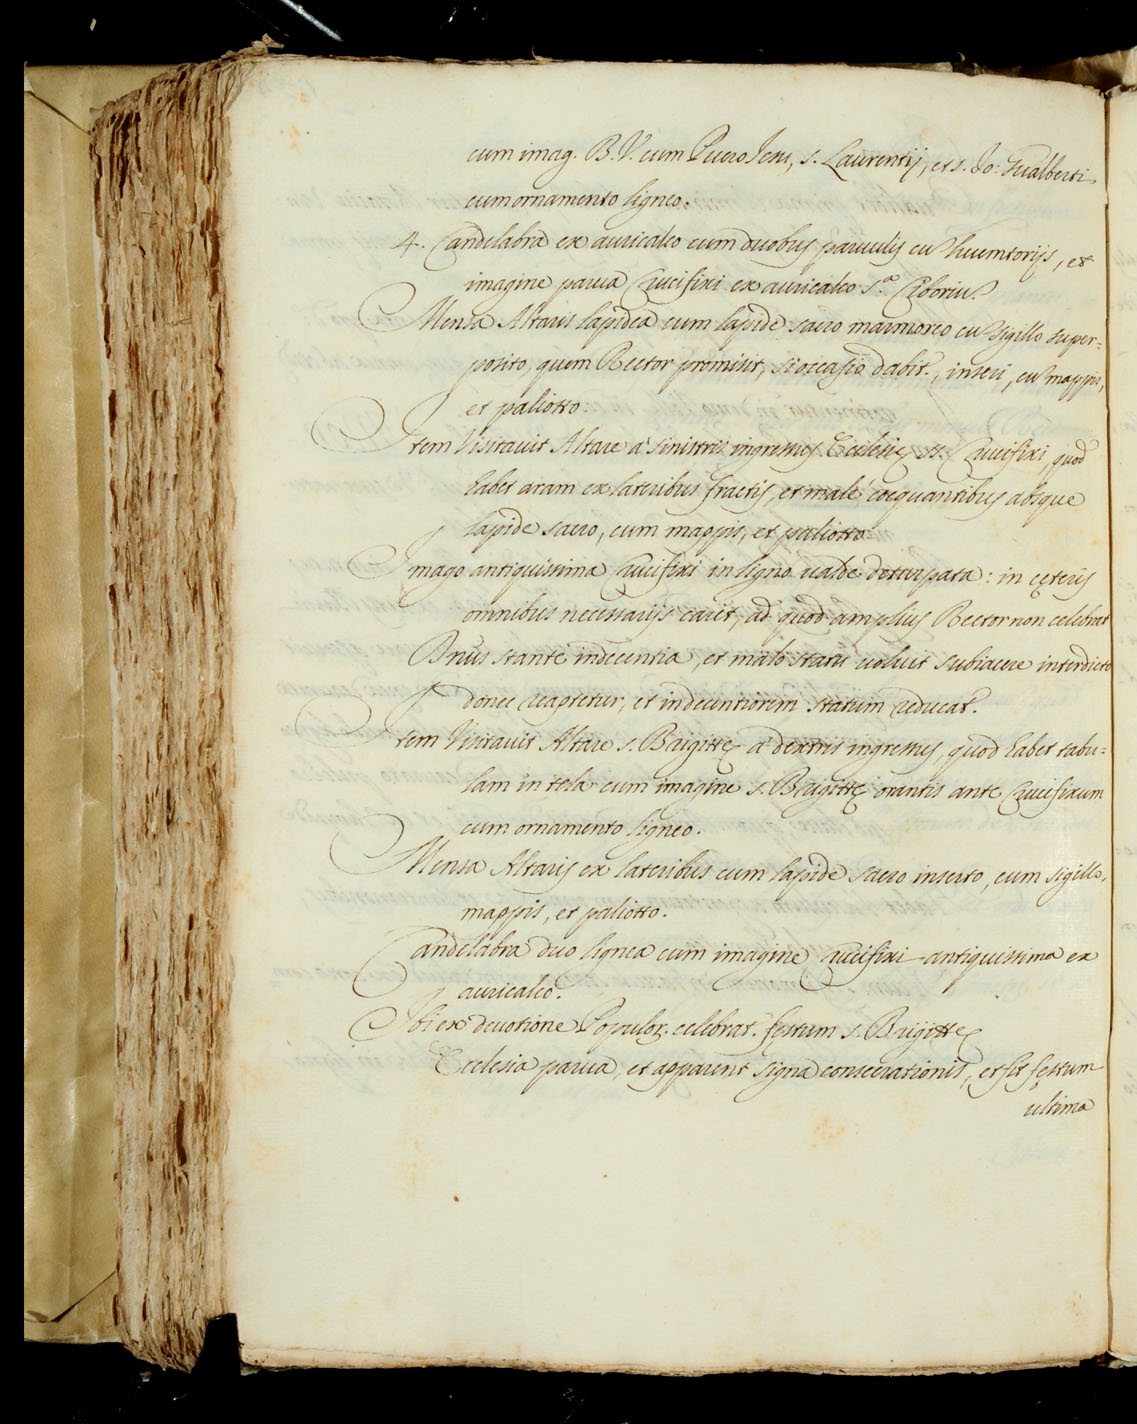 cum imag. B. V. cum Puero Jesu, s. Laurentij, et s. Jo: Gualberti
cum ornamento ligneo.
4. Candelabra ex auricalco cum duobus paruulis cu
imagine parua Crucifixi ex auricalco s.ª Ciboriu.
Mensa Altaris lapidea cum lapide sacro marmoreo cu sigillo super=
posito, quem Rector promisit, si occasio dabit., inseri, cu mappis,
et paliotto.
Item Visitauit Altare a' sinistris ingressus Ecclesię ss. Crucifixi, quod
habet aram ex lateribus fractis, et malé coequantibus absque
lapide sacro, cum mappis, et paliotto.
Imago antiquissima Crucifixi in ligno ualde deturpata: in ceteris
omnibus necessarijs caret, ad quod amplius Rector non celebrat
Dnus stante indecentia, et malo statu uoluit subiacere interdicto
donec reaptetur, et in decentiorem statum reducat.
Item Visitauit Altare s. Brigittę a' dextris ingressus, quod habet tabu=
lam in tela cum imagine s. Brigittę orantis ante Crucifixum
cum ornamento ligneo.
Mensa Altaris ex lateribus cum lapide sacro inserto, cum sigillo,
mappis, et paliotto.
Candelabra duo lignea cum imagine Crucifixi antiquissima ex
auricalco.
Ibi ex deuotione Populoꝝ. celebrat. festum s. Brigittę
Ecclesia parua, et apparent signa consecrationis, et fit festum
ultima